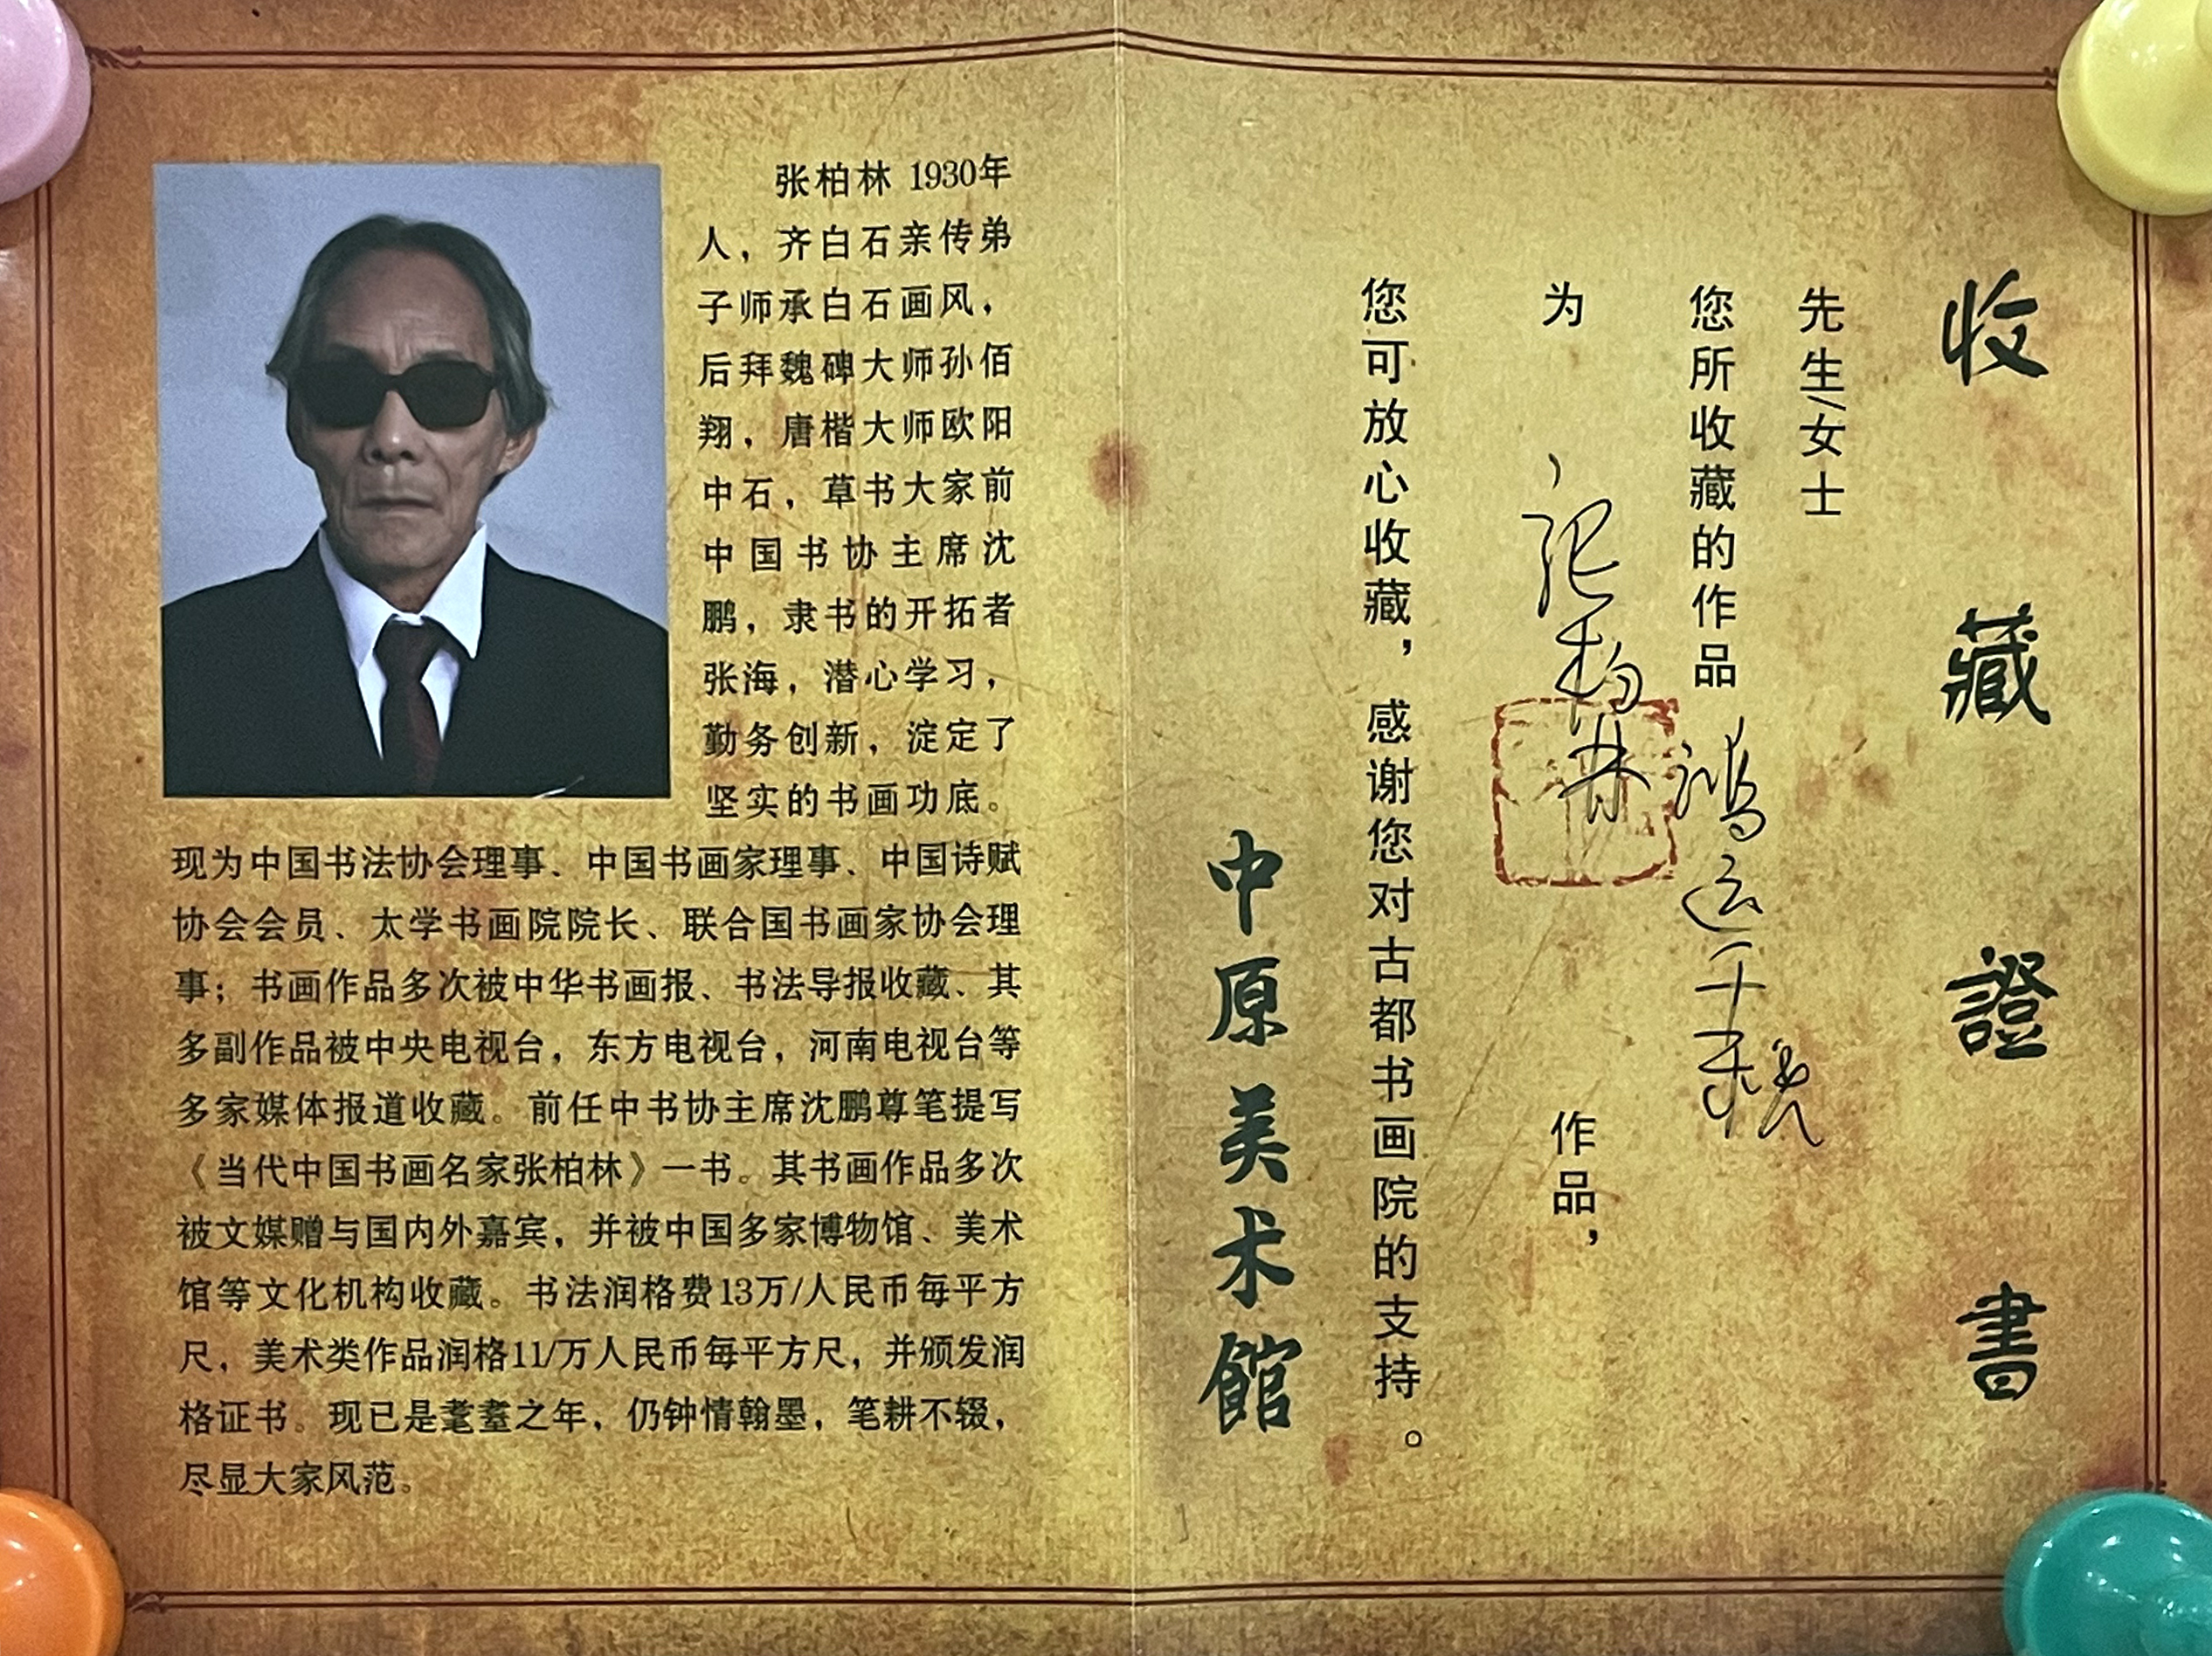 张柏林 1930年
人，齐白石亲传弟
子师承白石画风，
后拜魏碑大师孙佰
翔，唐楷大师欧阳
中石，草书大家前
中国书协主席沈
鹏，隶书的开拓者
张海，潜心学习，
勤务创新，淀定了
坚实的书画功底。
现为中国书法协会理事、中国书画家理事、中国诗赋
协会会员、太学书画院院长、联合国书画家协会理
事；书画作品多次被中华书画报、书法导报收藏、其
多副作品被中央电视台，东方电视台，河南电视台等
多家媒体报道收藏。前任中书协主席沈鹏尊笔提写
《当代中国书画名家张柏林》一书。其书画作品多次
被文媒赠与国内外嘉宾，并被中国多家博物馆、美术
馆等文化机构收藏。书法润格费13万/人民币每平方
尺，美术类作品润格11/万人民币每平方尺，并颁发润
格证书。现已是耄耋之年，仍钟情翰墨，笔耕不辍，
尽显大家风范。
收藏證書
先生/女士
您所收藏的作品 鸿运千秋
为 张柏林 作品，
您可放心收藏，感谢您对古都书画院的支持。
中原美术館